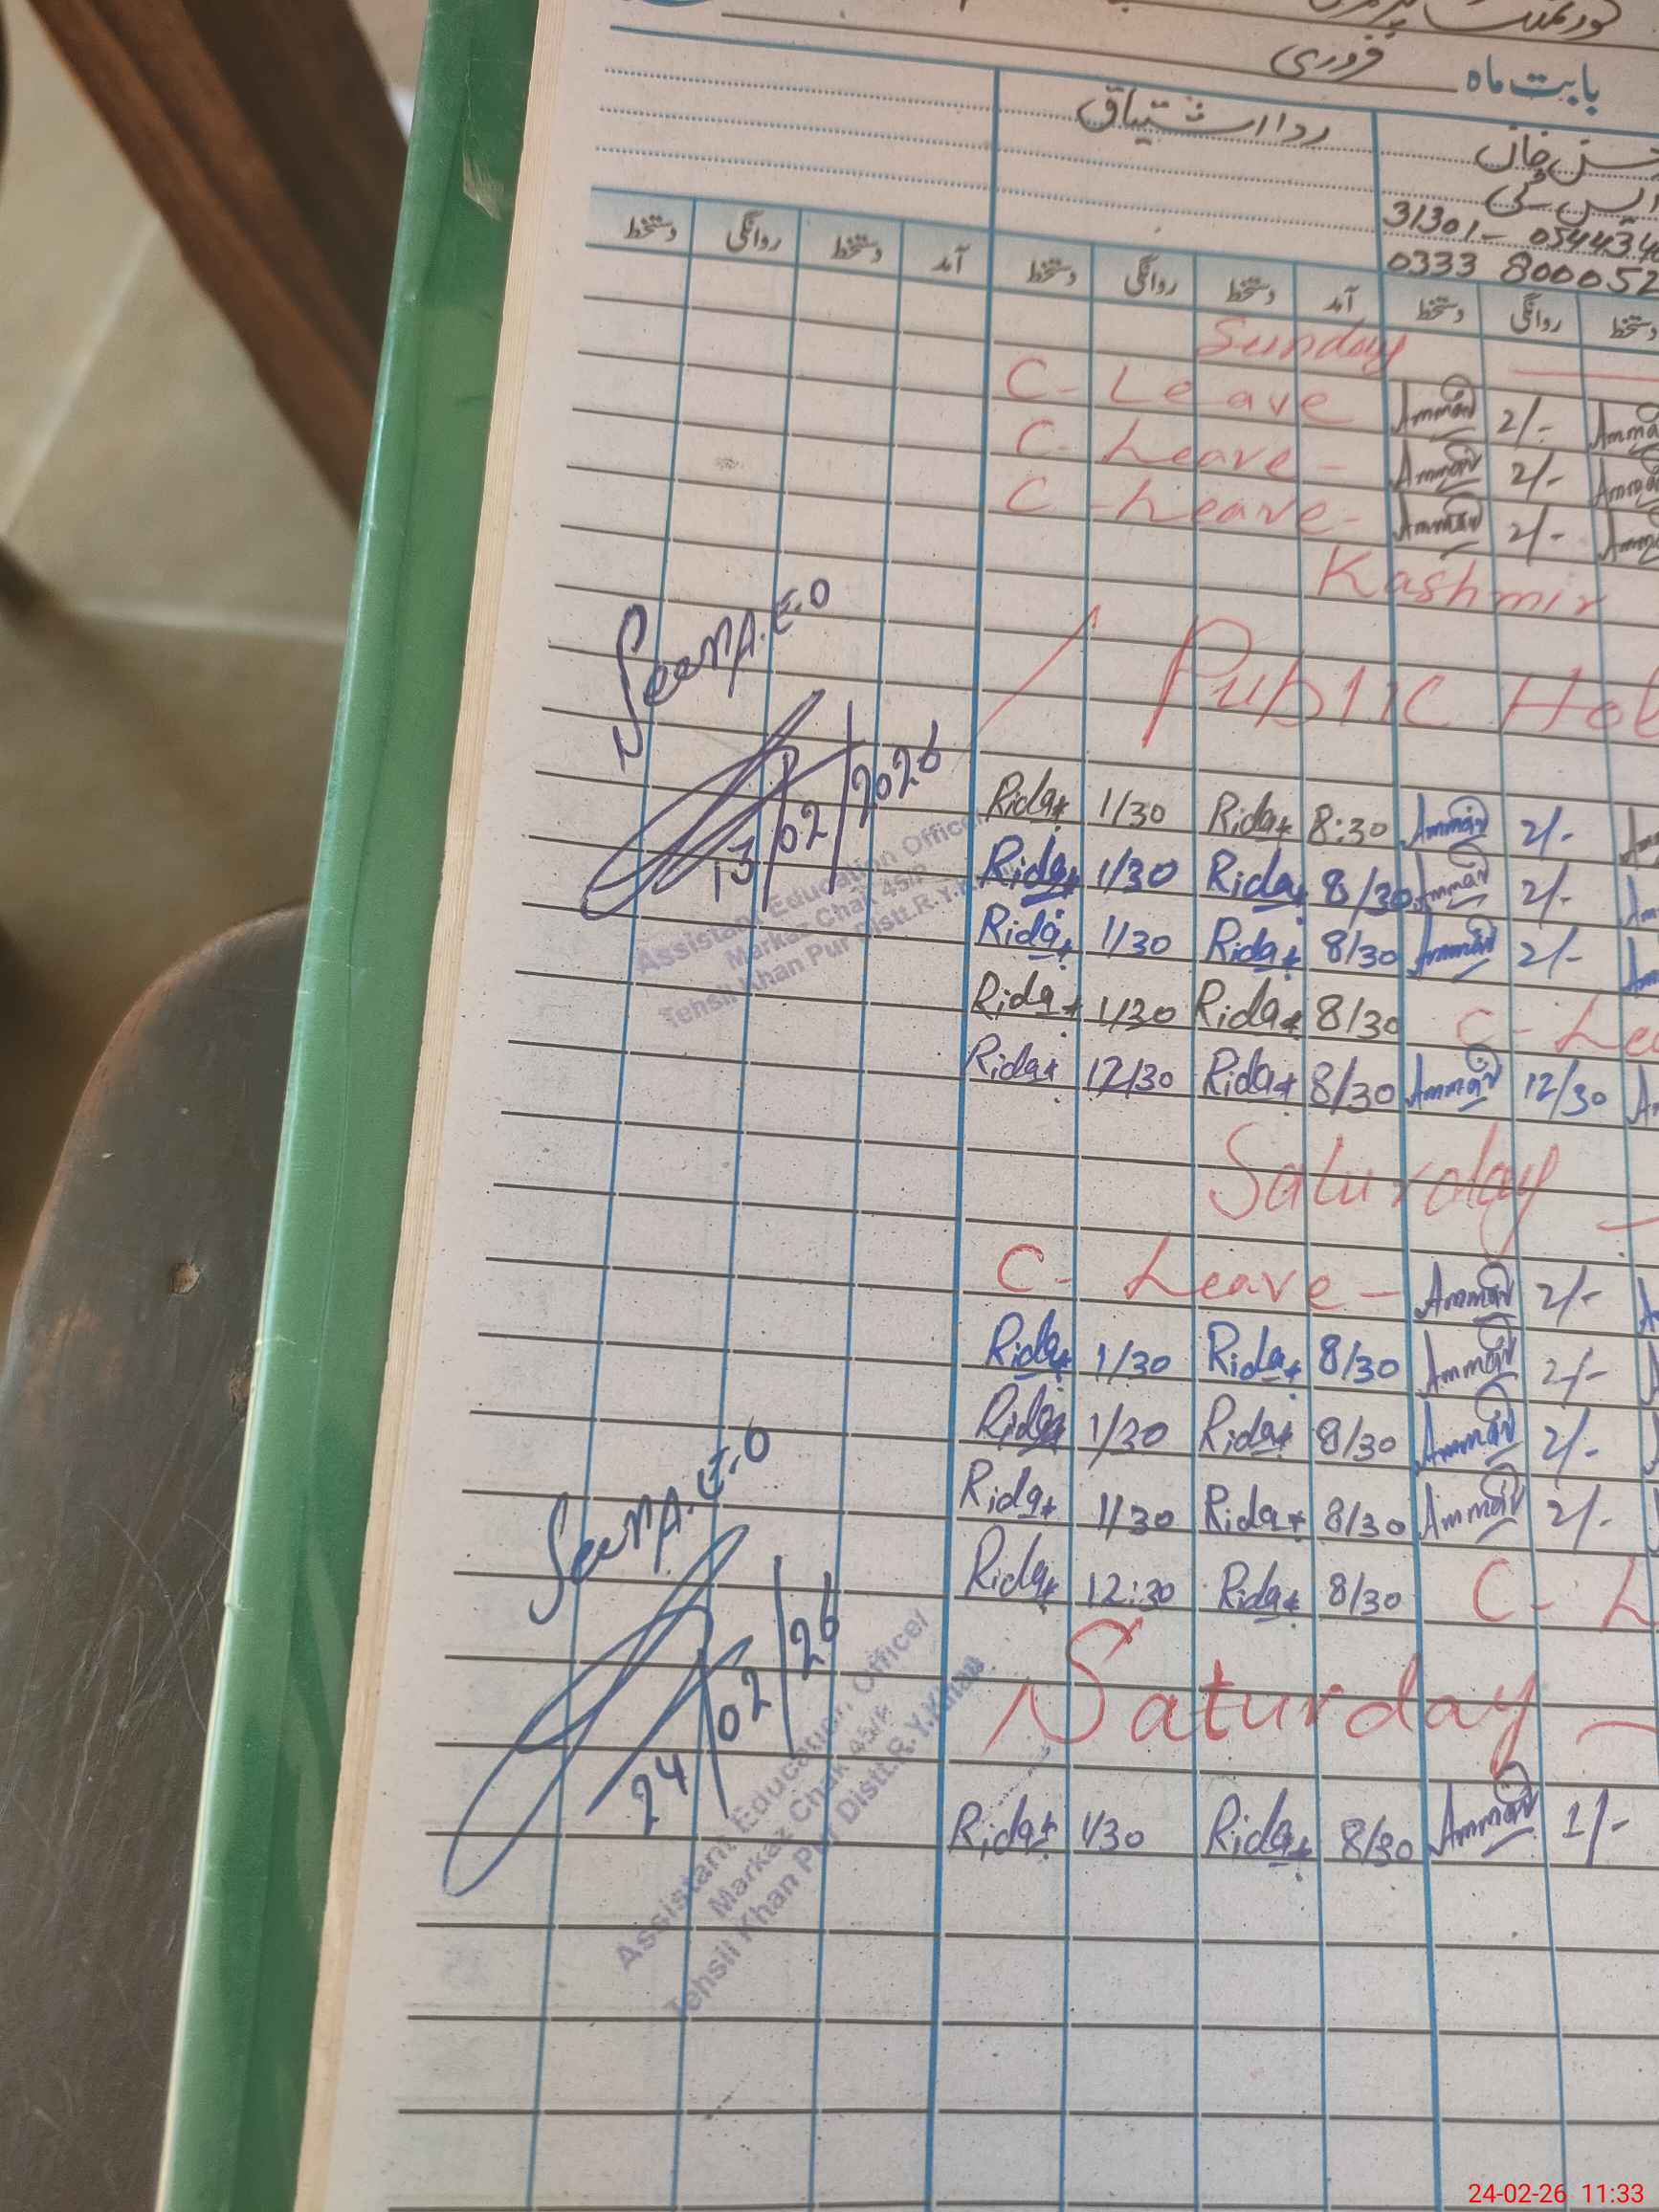 بابت ماہ فروری
ردا اشتیاق
خان
31301- 054434
0333 800052
دستخط روانگی دستخط آمد دستخط روانگی دستخط آمد دستخط روانگی دستخط
Sunday
C- Leave Ammar 2/-
C- Leave - Ammar 2/-
C- Leave - Ammar 2/-
Kashmir
Public Hol
Seen A.E.O
13/02/2026
Assistant Education Officer
Markaz Chak 45/P
Tehsil Khan Pur Distt.R.Y.
Rida 1/30 Rida 8:30 Ammar 2/-
Rida 1/30 Rida 8/30 Ammar 2/-
Rida 1/30 Rida 8/30 Ammar 2/-
Rida 1/30 Rida 8/30 C- Lea
Rida 12/30 Rida 8/30 Ammar 12/30
Saturday
C- Leave - Ammar 2/-
Rida 1/30 Rida 8/30 Ammar 2/-
Rida 1/30 Rida 8/30 Ammar 2/-
Rida 1/30 Rida 8/30 Ammar 2/-
Rida 12:30 Rida 8/30 C- L
Seen A.E.O
24/02/26
Assistant Education Officer
Markaz Chak 45/P
Tehsil Khan Pur Distt.R.Y.Khan
Saturday
Rida 1/30 Rida 8/30 Ammar 1/-
24-02-26 11:33